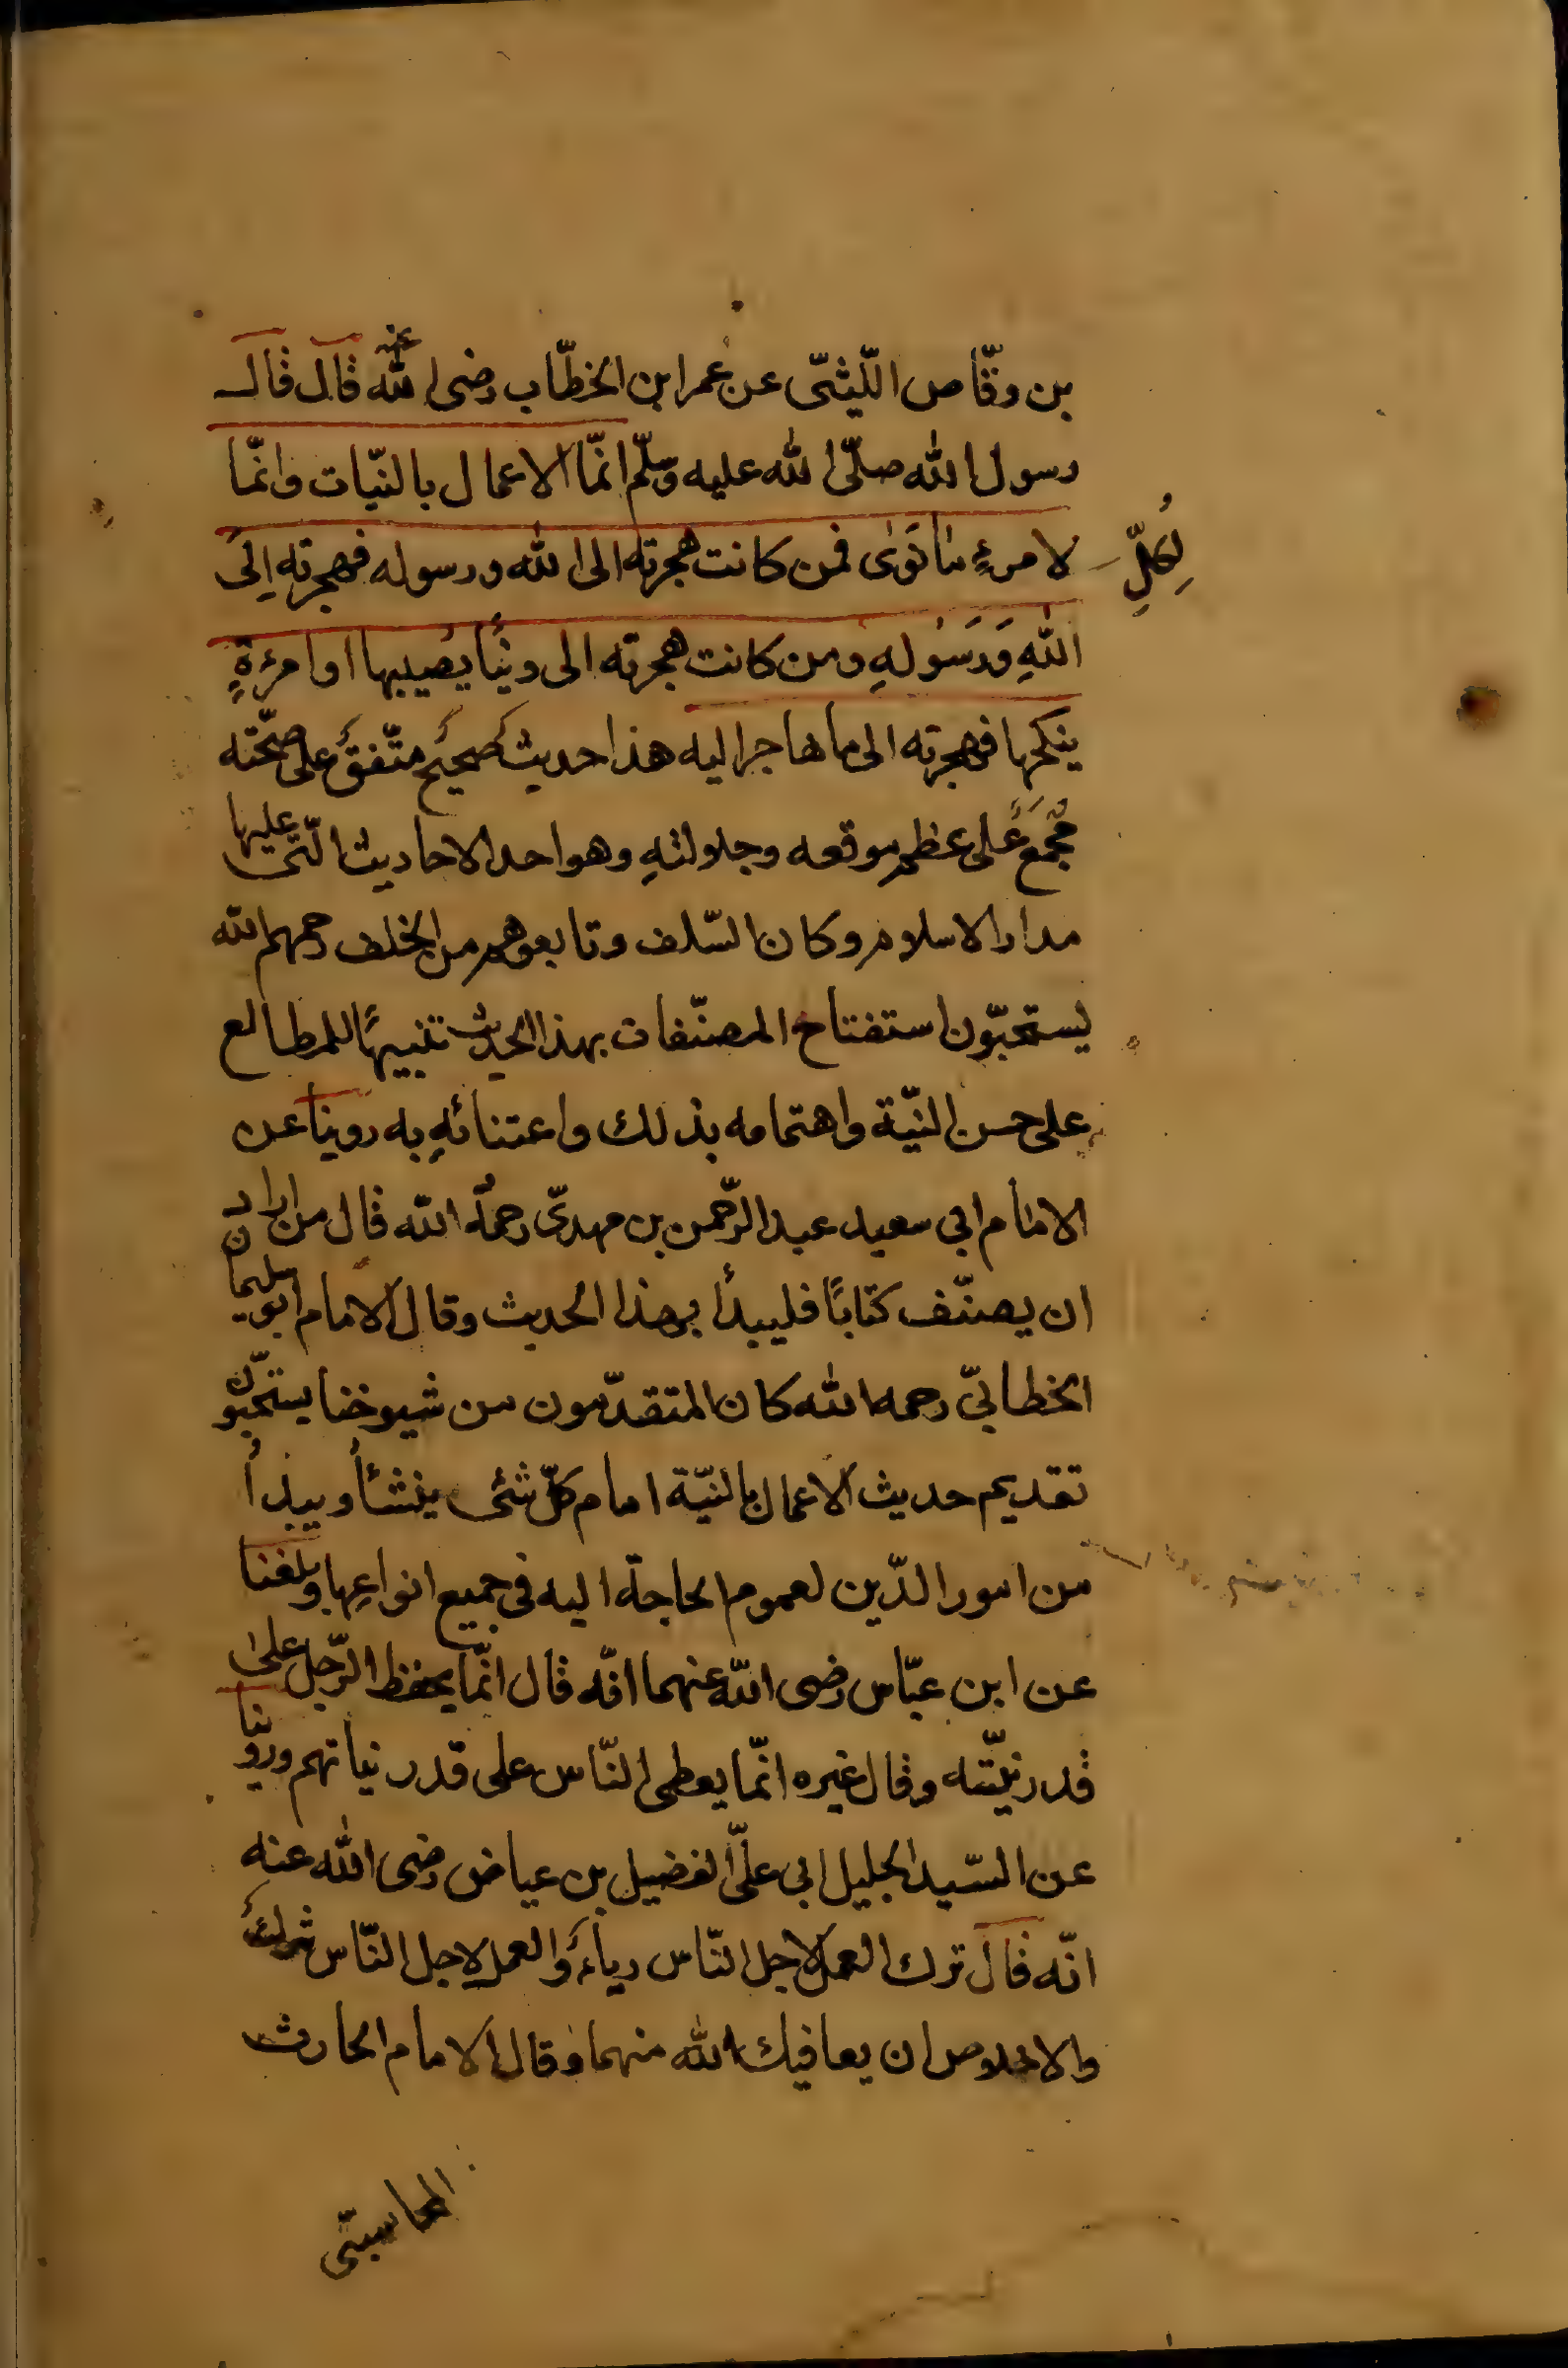 بن وقّاص اللّيثىّ عن عمر ابن الخطّاب رضى الله عنه قال قال
رسول الله صلّى الله عليه وسلّم انّما الاعمال بالنيّات وانّما
لِكُلِّ
لامرءٍ ما نَوٰى فمن كانت هجرته الى الله ورسوله فهجرته اِلَى
اللّٰهِ وَرَسُولهِ ومن كانت هجرته الى دنيًا يصُيبها او امرءةٍ
ينكحها فهجرته الى ما هاجر اليه هذا حديث صحيح متّفق على صحّته
مُجمَع على عظم موقعه وجلالتهِ وهو احد الاحاديث الّتى عليها
مدار الاسلام وكان السّلف وتابعوهم من الخلف رحمهم الله
يستحبّون استفتاح المصنّفات بهذا الحديث تنبيهًا للمطالع
على حسن النيّة واهتمامه بذلك واعتنائهِ به روينا عن
الامام ابى سعيد عبد الرّحمن بن مهدىّ رحمهُ الله قال من اراد
ان يصنّف كتابًا فليبدأ بهذا الحديث وقال الامام ابو سليمان
الخطابىّ رحمه الله كان المتقدّمون من شيوخنا يستحبّون
تقديم حديث الاعمال بالنيّة امام كلّ شئى ينشأُ ويبدأُ
من امور الدّين لعموم الحاجة اليه فى جميع انواعِها وبلغنا
عن ابن عبّاس رضى الله عنهما انّه قال انّما يحفظ الرّجل على
قدر نيّته وقال غيره انّما يعطى النّاس على قدر نياتهم وروينا
عن السّيد الجليل ابى علىّ الفضيل بن عياض رضى الله عنه
انّه قال ترك العمل لاجل النّاس رياءٌ والعمل لاجل النّاس شرك
والاخلاص ان يعافيك الله منهما وقال الامام الحارث
المحاسبىّ